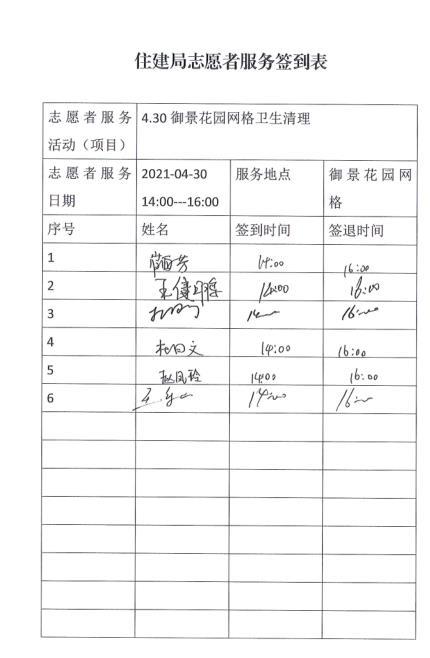 住建局志愿者服务签到表
志愿者服务活动（项目） 4.30 御景花园网格卫生清理
志愿者服务日期 2021-04-30 14:00---16:00 服务地点 御景花园网格
序号 姓名 签到时间 签退时间
1 14:00 16:00
2 14:00 16:00
3 14 16
4 杜向文 14:00 16:00
5 赵凤玲 14:00 16:00
6 14 16